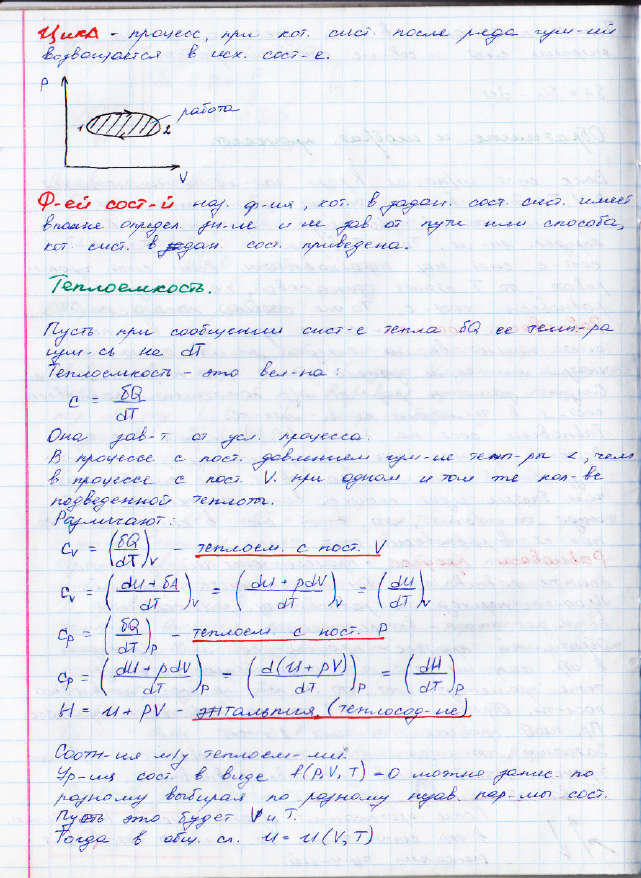 Цикл - процесс, при кот. сист. после ряда изм-ий
возвращается в исх. сост-е.
P
работа
1
2
V
Ф-ей сост-й наз. ф-ия, кот. в задан. сост. сист. имеет
вполне определ. зн-ие и не зав. от пути или способа,
кот. сист. в задан. сост. приведена.
Теплоемкость.
Пусть при сообщении сист-е тепла δQ ее темп-ра
изм-сь на dT
Теплоемкость - это вел-на:
C = δQ/dT
Она зав-т от усл. процесса.
В процессе с пост. давлением изм-ие темп-ры <, чем
в процессе с пост. V. при одном и том же кол-ве
подведенной теплоты.
Различают:
C_V = (δQ/dT)_V - теплоем. с пост. V
C_V = ((dU + δA)/dT)_V = ((dU + pdV)/dT)_V = (dU/dT)_V
C_P = (δQ/dT)_P - теплоем. с пост. P
C_P = ((dU + pdV)/dT)_P = (d(U + pV)/dT)_P = (dH/dT)_P
H = U + PV - энтальпия (теплосод-ие)
Соотн-ия м/у теплоем-ми.
Ур-ия сост. в виде f(P, V, T) = 0 можно запис. по
разному выбирая по разному незав. пар-мы сост.
Пусть это будет V и T.
Тогда в общ. сл. U = U(V, T)